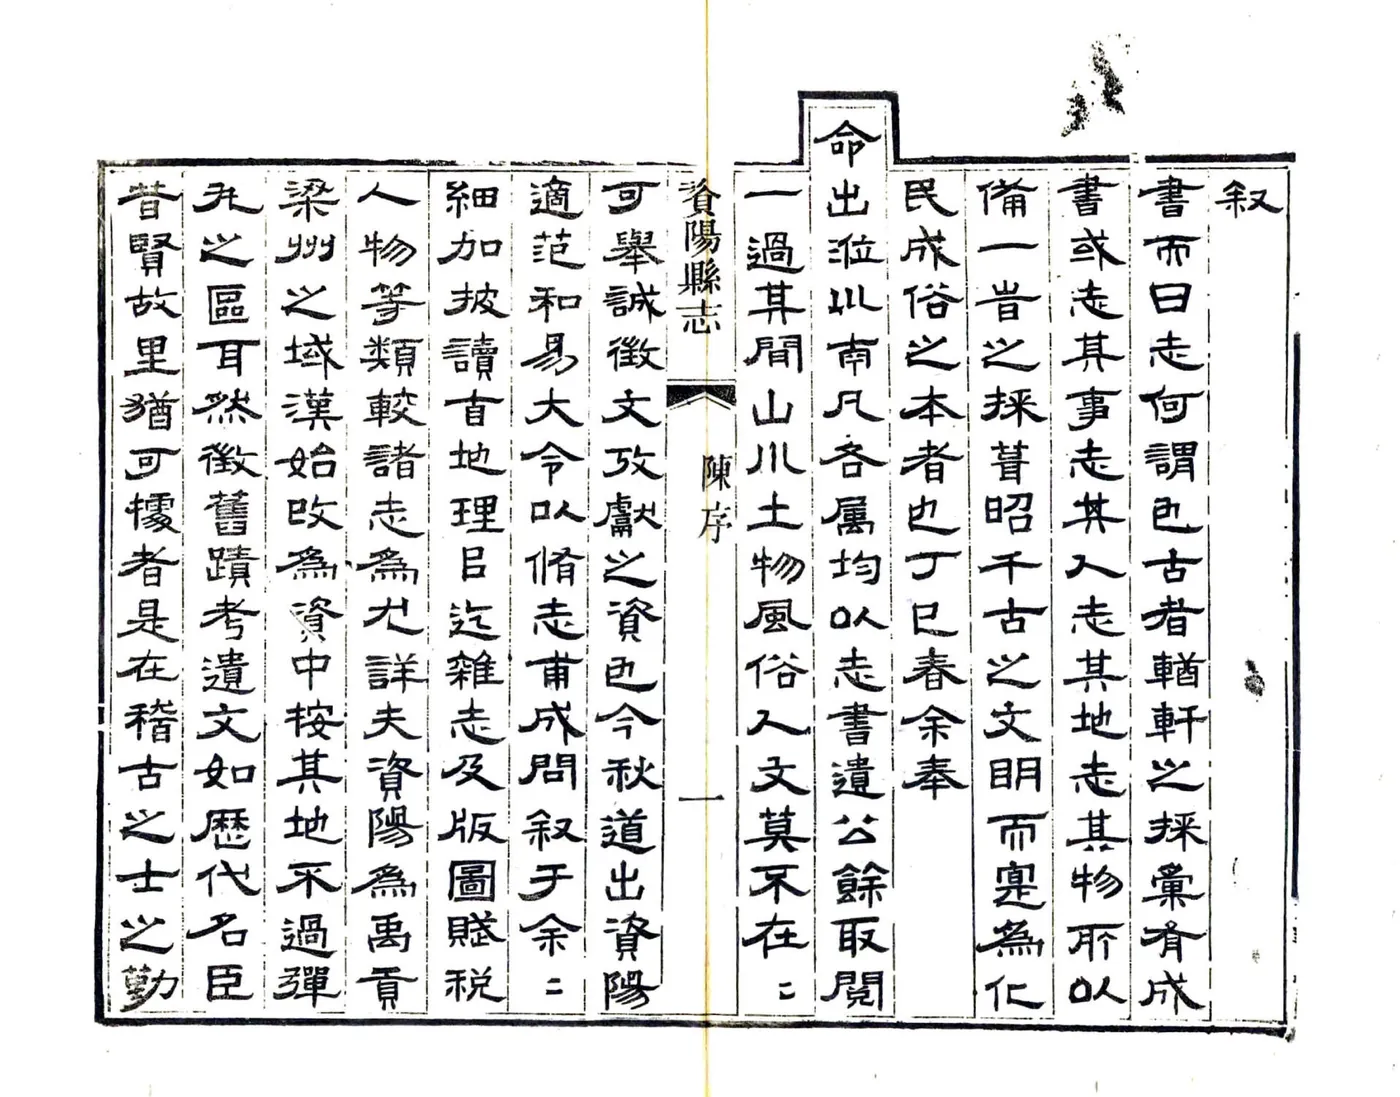 叙
書而曰志何謂也古者輶軒之採彙有成
書或志其事志其人志其地志其物所以
備一昔之採葺昭千古之文明而寔為化
民成俗之本者也丁巳春余奉
命出涖川南凡各属均以志書遺公餘取閱
一過其間山川土物風俗人文莫不在二
資陽縣志
陳序
一
可舉誠徵文攷獻之資也今秋道出資陽
適范和易大令以脩志甫成問叙于余二
細加披讀首地理呂迄雜志及版圖賦税
人物等類較諸志為尤詳夫資陽為禹貢
梁州之域漢始改為資中按其地不過彈
丸之區耳然徵舊蹟考遺文如歷代名臣
昔賢故里猶可據者是在稽古之士之勤